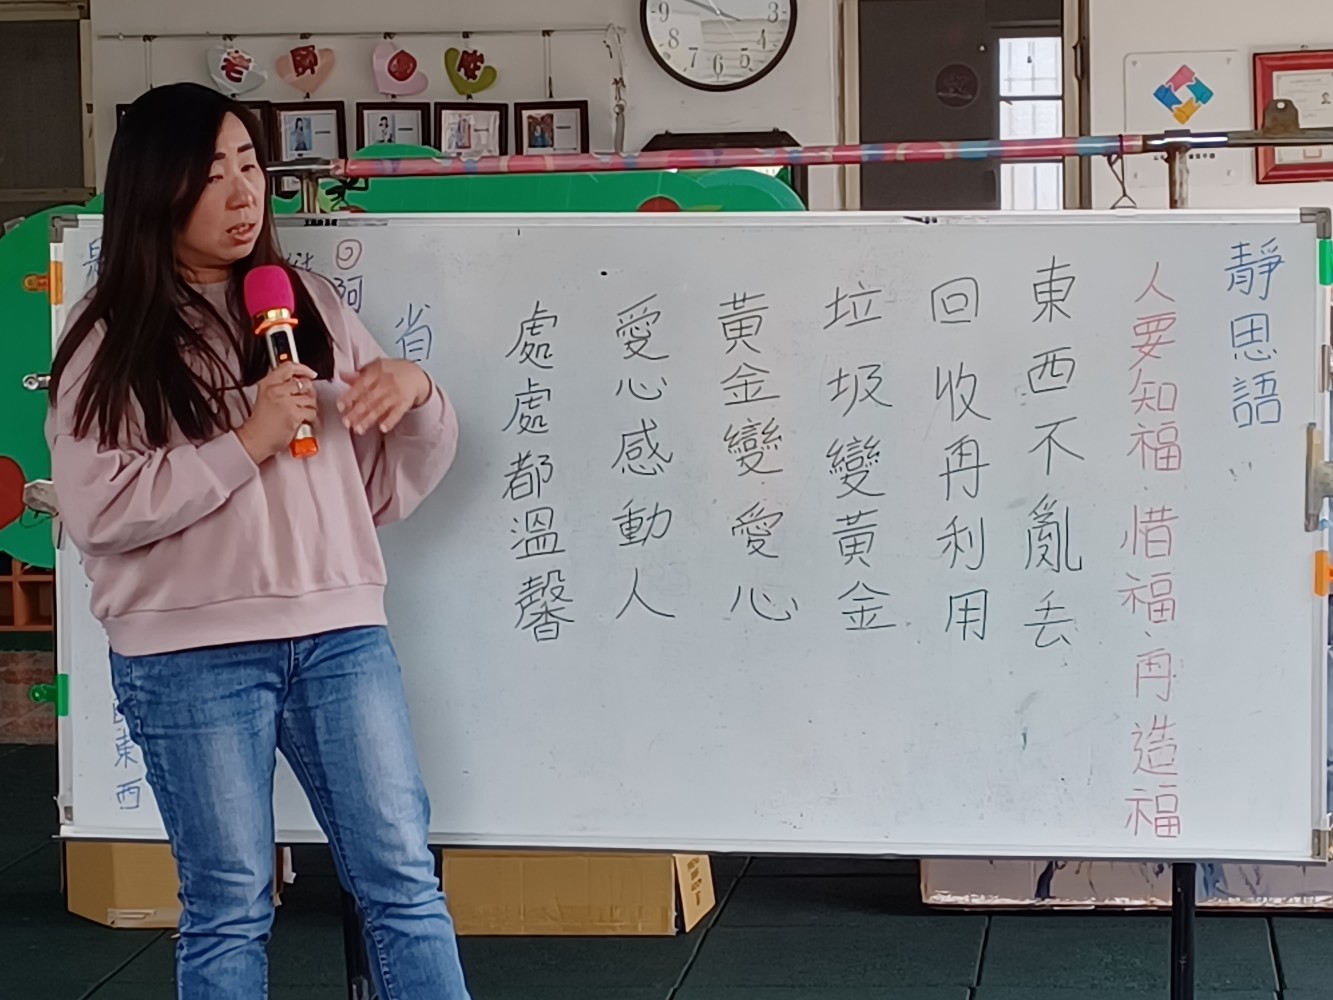 靜思語
人要知福.惜福.再造福
東西不亂丟
回收再利用
垃圾變黃金
黃金變愛心
愛心感動人
處處都溫馨
省
回
阿
東西
9
8
7
6
5
4
3